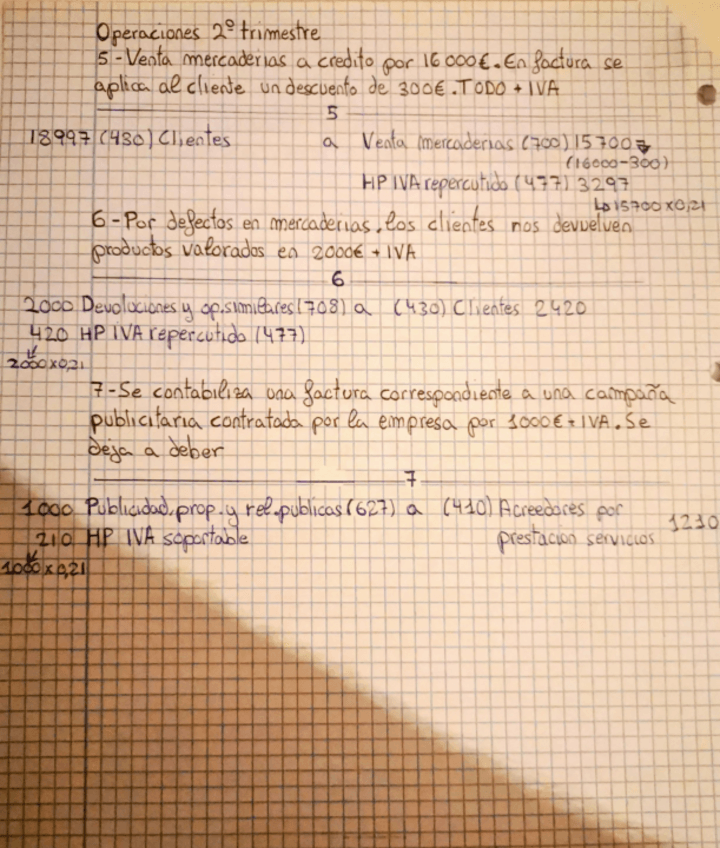 Operaciones 2º trimestre
5-Venta mercaderias a credito por 16000€. En factura se
aplica al cliente un descuento de 300€. TODO + IVA
5
18997 (430) Clientes a Venta mercaderias (700) 15700
(16000-300)
HP IVA repercutido (477) 3297
↳15700x0,21
6-Por defectos en mercaderias, los clientes nos devuelven
productos valorados en 2000€ + IVA
6
2000 Devoluciones y op.similares (708) a (430) Clientes 2420
420 HP IVA repercutido (477)
2000x0,21
7-Se contabiliza una factura correspondiente a una campaña
publicitaria contratada por la empresa por 1000€ + IVA. Se
deja a deber
7
1000 Publicidad, prop. y rel. publicas (627) a (410) Acreedores por 1210
210 HP IVA soportable prestacion servicios
1000x0,21